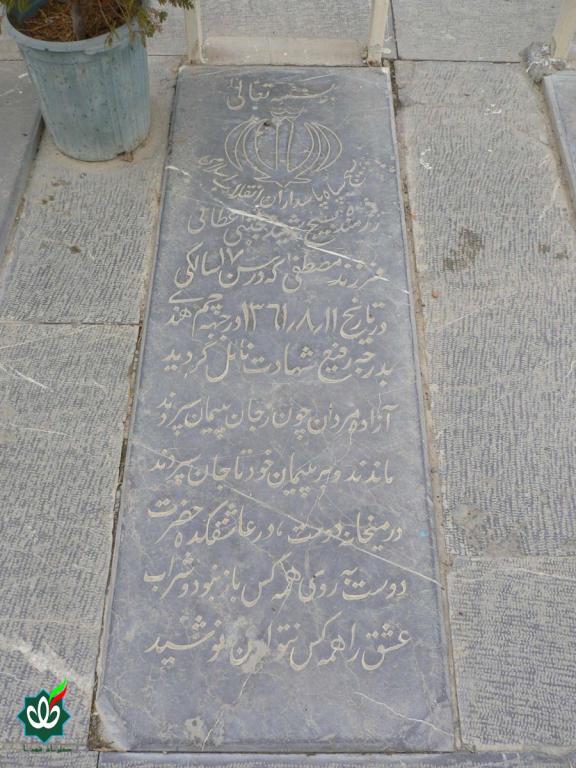 بسمه تعالی
بسیج سپاه پاسداران انقلاب اسلامی
رزمنده بسیج شهید مجتبی عطائی
فرزند مصطفی که در سن ۱۷ سالگی
در تاریخ ۱۳۶۱/۸/۱۱ در جبهه چم هندی
بدرجه رفیع شهادت نائل گردید
آزاده مردان چون رجان پیمان سپردند
ماندند و بر پیمان خود تا جان سپردند
در میخانه دوست، در عاشقکده حضرت
دوست به روی همه کس باز نبود و شراب
عشق را همه کس نتواند نوشید